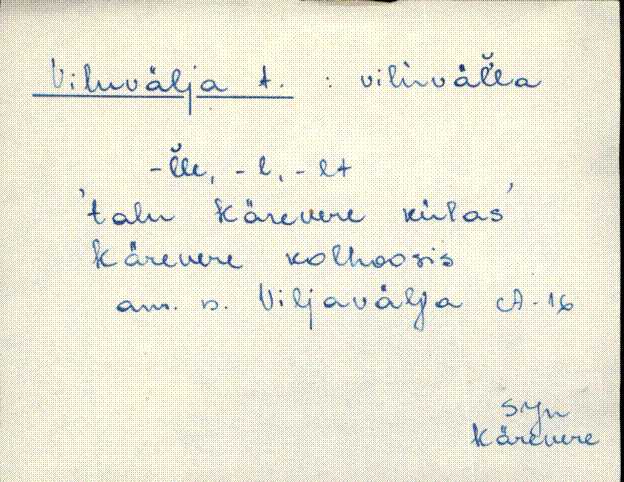 Viluvälja t. : viliväl̆l̆a
-l̆l̆e, -l, -lt
'talu Kärevere külas'
Kärevere kolhoosis
am. n. Viljavälja A-16
SJn
Kärevere